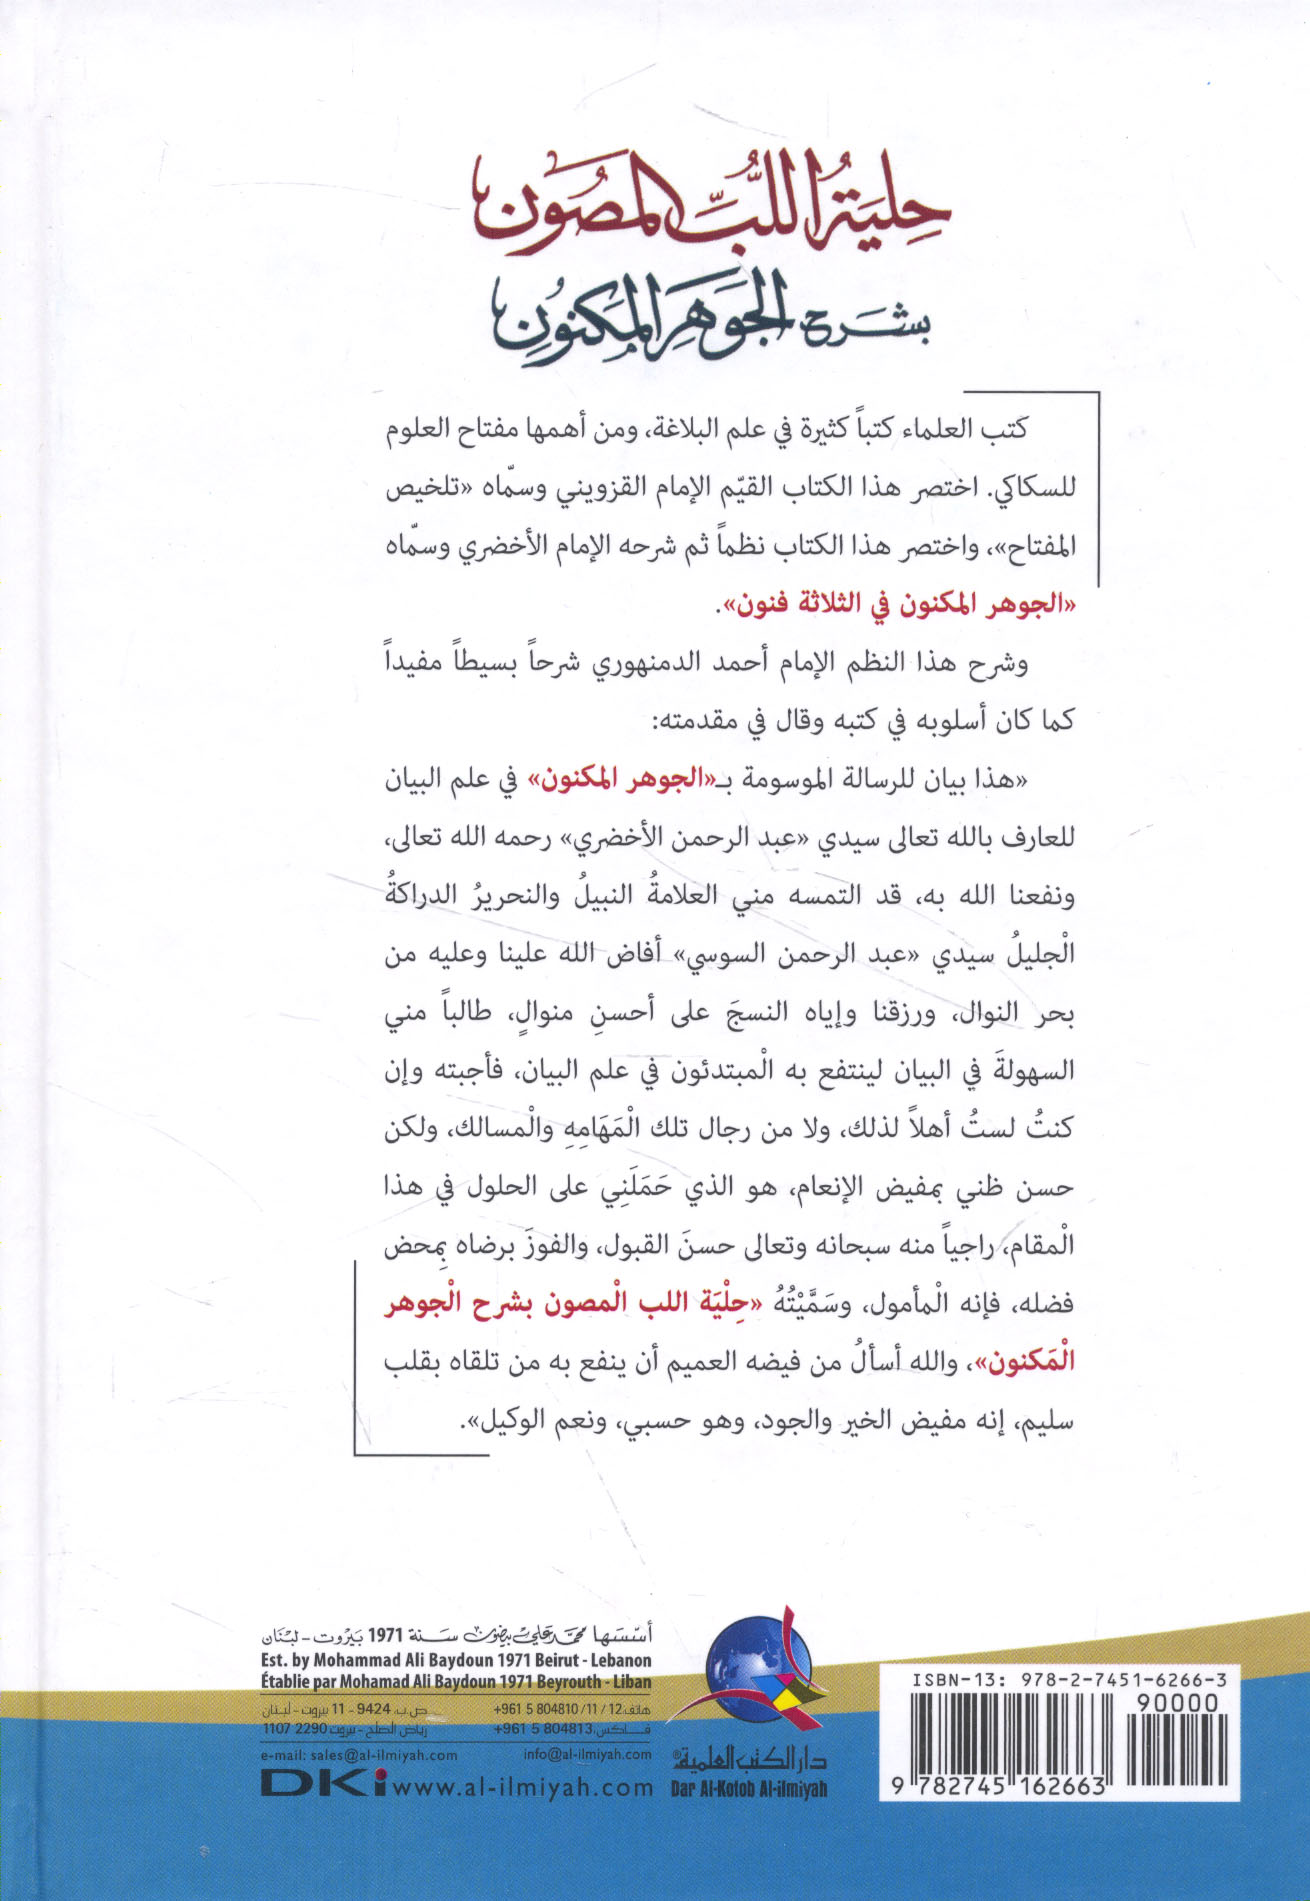 حِليَةُ اللُّبِّ المَصُون
بشَرح الجَوهَرِ المَكنُونِ
كتب العلماء كتباً كثيرة في علم البلاغة، ومن أهمها مفتاح العلوم
للسكاكي. اختصر هذا الكتاب القيّم الإمام القزويني وسمّاه «تلخيص
المفتاح»، واختصر هذا الكتاب نظماً ثم شرحه الإمام الأخضري وسمّاه
«الجوهر المكنون في الثلاثة فنون».
وشرح هذا النظم الإمام أحمد الدمنهوري شرحاً بسيطاً مفيداً
كما كان أسلوبه في كتبه وقال في مقدمته:
«هذا بيان للرسالة الموسومة بـ«الجوهر المكنون» في علم البيان
للعارف بالله تعالى سيدي «عبد الرحمن الأخضري» رحمه الله تعالى،
ونفعنا الله به، قد التمسه مني العلامةُ النبيلُ والنحريرُ الدراكةُ
الْجليلُ سيدي «عبد الرحمن السوسي» أفاض الله علينا وعليه من
بحر النوال، ورزقنا وإياه النسجَ على أحسنِ منوالٍ، طالباً مني
السهولةَ في البيان لينتفع به الْمبتدئون في علم البيان، فأجبته وإن
كنتُ لستُ أهلاً لذلك، ولا من رجال تلك الْمَهَامِهِ والْمسالك، ولكن
حسن ظني بمفيض الإنعام، هو الذي حَمَلَنِي على الحلول في هذا
الْمقام، راجياً منه سبحانه وتعالى حسنَ القبول، والفوزَ برضاه بِمحض
فضله، فإنه الْمأمول، وسَمَّيْتُهُ «حِلْيَة اللب الْمصون بشرح الْجوهر
الْمَكنون»، والله أسألُ من فيضه العميم أن ينفع به من تلقاه بقلب
سليم، إنه مفيض الخير والجود، وهو حسبي، ونعم الوكيل».
أسّسَها محمّد علي بيضون سَنة 1971 بَيْروت - لبْنَان
Est. by Mohammad Ali Baydoun 1971 Beirut - Lebanon
Établie par Mohamad Ali Baydoun 1971 Beyrouth - Liban
هاتف: +961 5 804810 /11 / 12 ص.ب: 9424 - 11 بيروت - لبنان
فاكس: +961 5 804813 رياض الصلح - بيروت 1107 2290
e-mail: sales@al-ilmiyah.com info@al-ilmiyah.com
DKi www.al-ilmiyah.com
دار الكتب العلمية®
Dar Al-Kotob Al-ilmiyah
ISBN-13: 978-2-7451-6266-3
90000
9 782745 162663